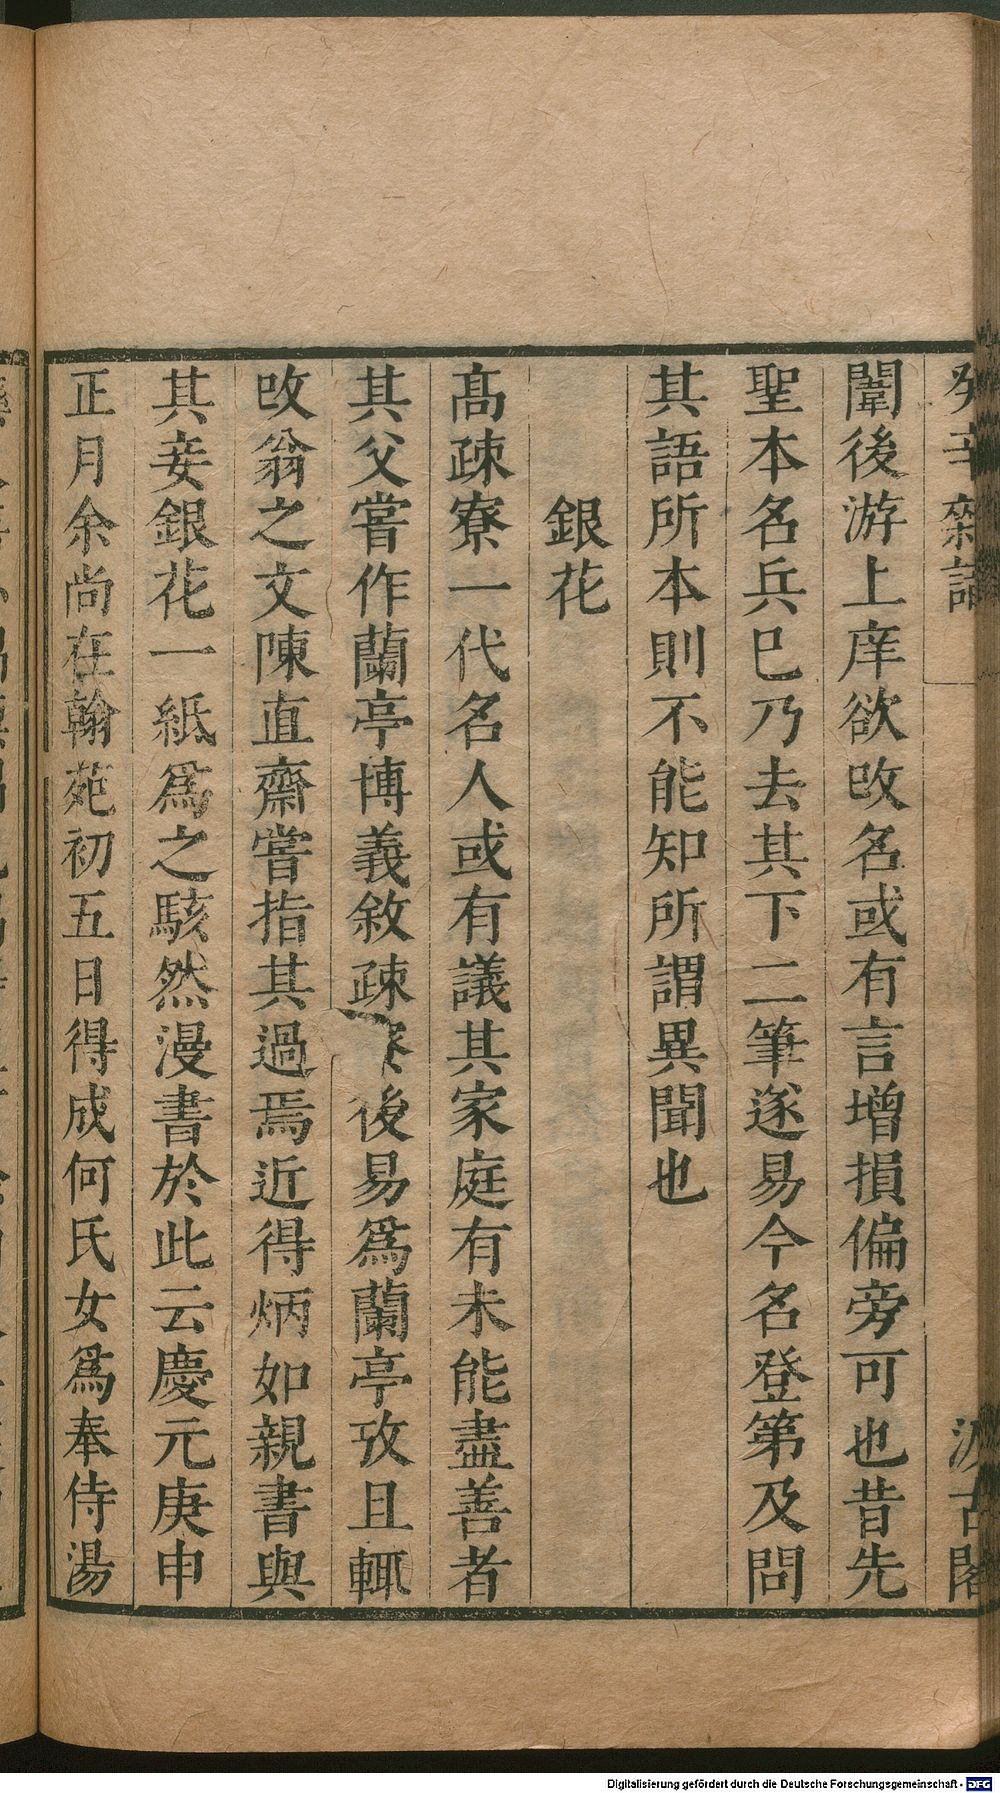 癸辛雜識
汲古閣
闈後游上庠欲攺名或有言增損偏旁可也昔先
聖本名兵巳乃去其下二筆遂易今名登第及問
其語所本則不能知所謂異聞也
銀花
高疎寮一代名人或有議其家庭有未能盡善者
其父嘗作蘭亭博義敘疎寮後易爲蘭亭攷且輒
攺翁之文陳直齋嘗指其過焉近得炳如親書與
其妾銀花一紙爲之駭然漫書於此云慶元庚申
正月余尚在翰苑初五日得成何氏女爲奉侍湯
Digitalisierung gefördert durch die Deutsche Forschungsgemeinschaft - DFG